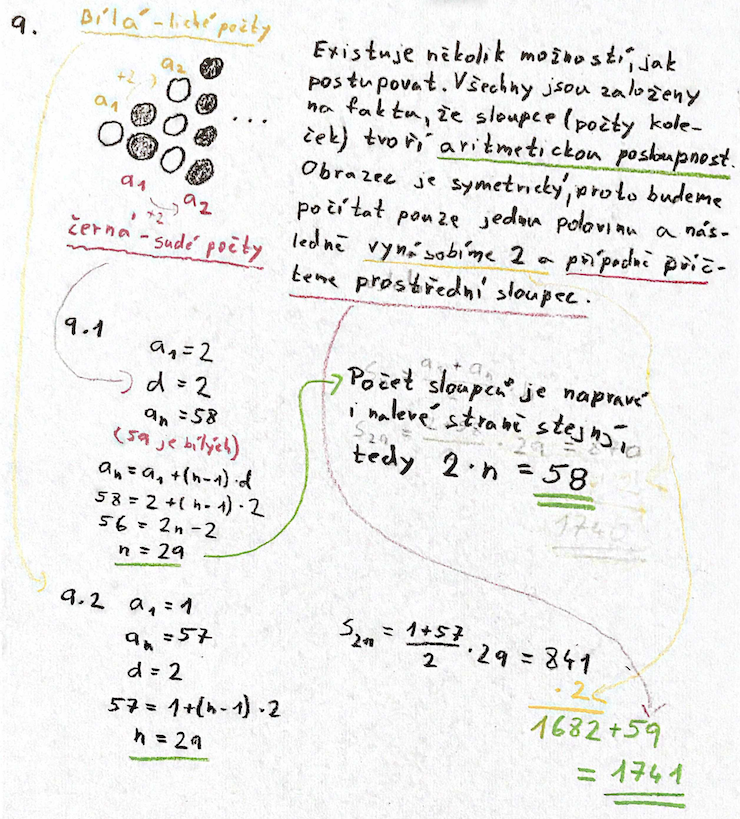 9.
Bílá - liché počty
+2
a₂
a₁
...
a₁
+2
a₂
černá - sudé počty
Existuje několik možností, jak
postupovat. Všechny jsou založeny
na faktu, že sloupce (počty kole-
ček) tvoří aritmetickou posloupnost.
Obrazec je symetrický, proto budeme
počítat pouze jednu polovinu a nás-
ledně vynásobíme 2 a případně přič-
teme prostřední sloupec.
9.1
a₁ = 2
d = 2
aₙ = 58
(59 je bílých)
aₙ = a₁ + (n-1)·d
58 = 2 + (n-1)·2
56 = 2n - 2
n = 29
Počet sloupců je napravé
i nalevé straně stejný,
tedy 2·n = 58
9.2
a₁ = 1
aₙ = 57
d = 2
57 = 1+(n-1)·2
n = 29
S₂₉ = (1+57)/2 · 29 = 841
·2
1682 + 59
= 1741